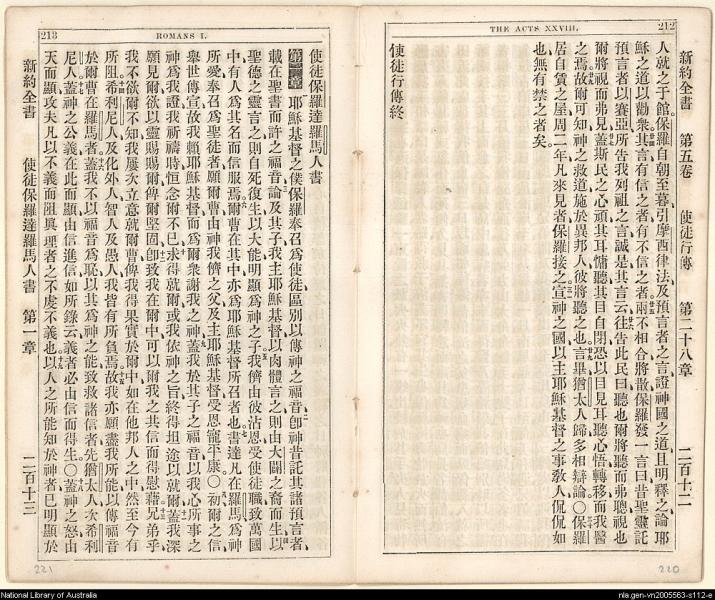 THE ACTS XXVIII.
212
新約全書 第五卷 使徒行傳 第二十八章 二百十二
人就之于館保羅自朝至暮引摩西律法及預言者之言證神國之道且明釋之論耶
穌之道以勸衆其言有信之者有不信之者兩不相合將散保羅發一言曰昔聖靈託
預言者以賽亞所告我列祖之言誠是其言云往告此民曰聽也爾將聽而弗聰視也
爾將視而弗見蓋斯民之心頑其耳慵聽其目自閉恐以目見耳聽心悟轉移而我醫
之焉故爾可知神之救道施於異邦人彼將聽之也言畢猶太人歸多相辯論〇保羅
居自賃之屋周二年凡來見者保羅接之宣神之國以主耶穌基督之事敎人侃侃如
也無有禁之者矣
使徒行傳終
213
ROMANS I.
使徒保羅達羅馬人書
第一章 耶穌基督之僕保羅奉召爲使徒區別以傳神之福音卽神昔託其諸預言者
載在聖書而許之福音論及其子我主耶穌基督以肉體言之則由大闢之裔而生以
聖德之靈言之則自死復生以大能明顯爲神之子我儕由彼沾恩受使徒職致萬國
中有人爲其名而信服焉爾曹在其中亦爲耶穌基督所召者也書達凡在羅馬爲神
所愛奉召爲聖徒者願爾曹由神我儕之父及主耶穌基督受恩寵平康〇初爾之信
舉世傳宣故我賴耶穌基督而爲爾衆謝我之神蓋我於其子之福音以我心所事之
神爲我證我祈禱時恒念爾不已求得就爾或我依神之旨終得坦途以就爾蓋我深
願見爾欲以靈賜賜爾俾爾堅固卽致我在爾中可以爾我之共信而得慰藉兄弟乎
我不欲爾不知我屢次立意就爾曹俾我得果實於爾中如在他邦人之中然至今有
所阻希利尼人及化外人智人及愚人我皆有所負焉故我亦願盡我所能以傳福音
於爾曹在羅馬者蓋我不以福音爲恥以其爲神之能致救諸信者先猶太人次希利
尼人蓋神之公義在此而顯由信進信如所錄云義者必由信而得生〇蓋神之怒由
天而顯攻夫凡以不義而阻眞理者之不虔不義也以人之所能知於神者已明顯於
新約全書 使徒保羅達羅馬人書 第一章 二百十三
221
220
National Library of Australia
nla.gen-vn2005563-s112-e